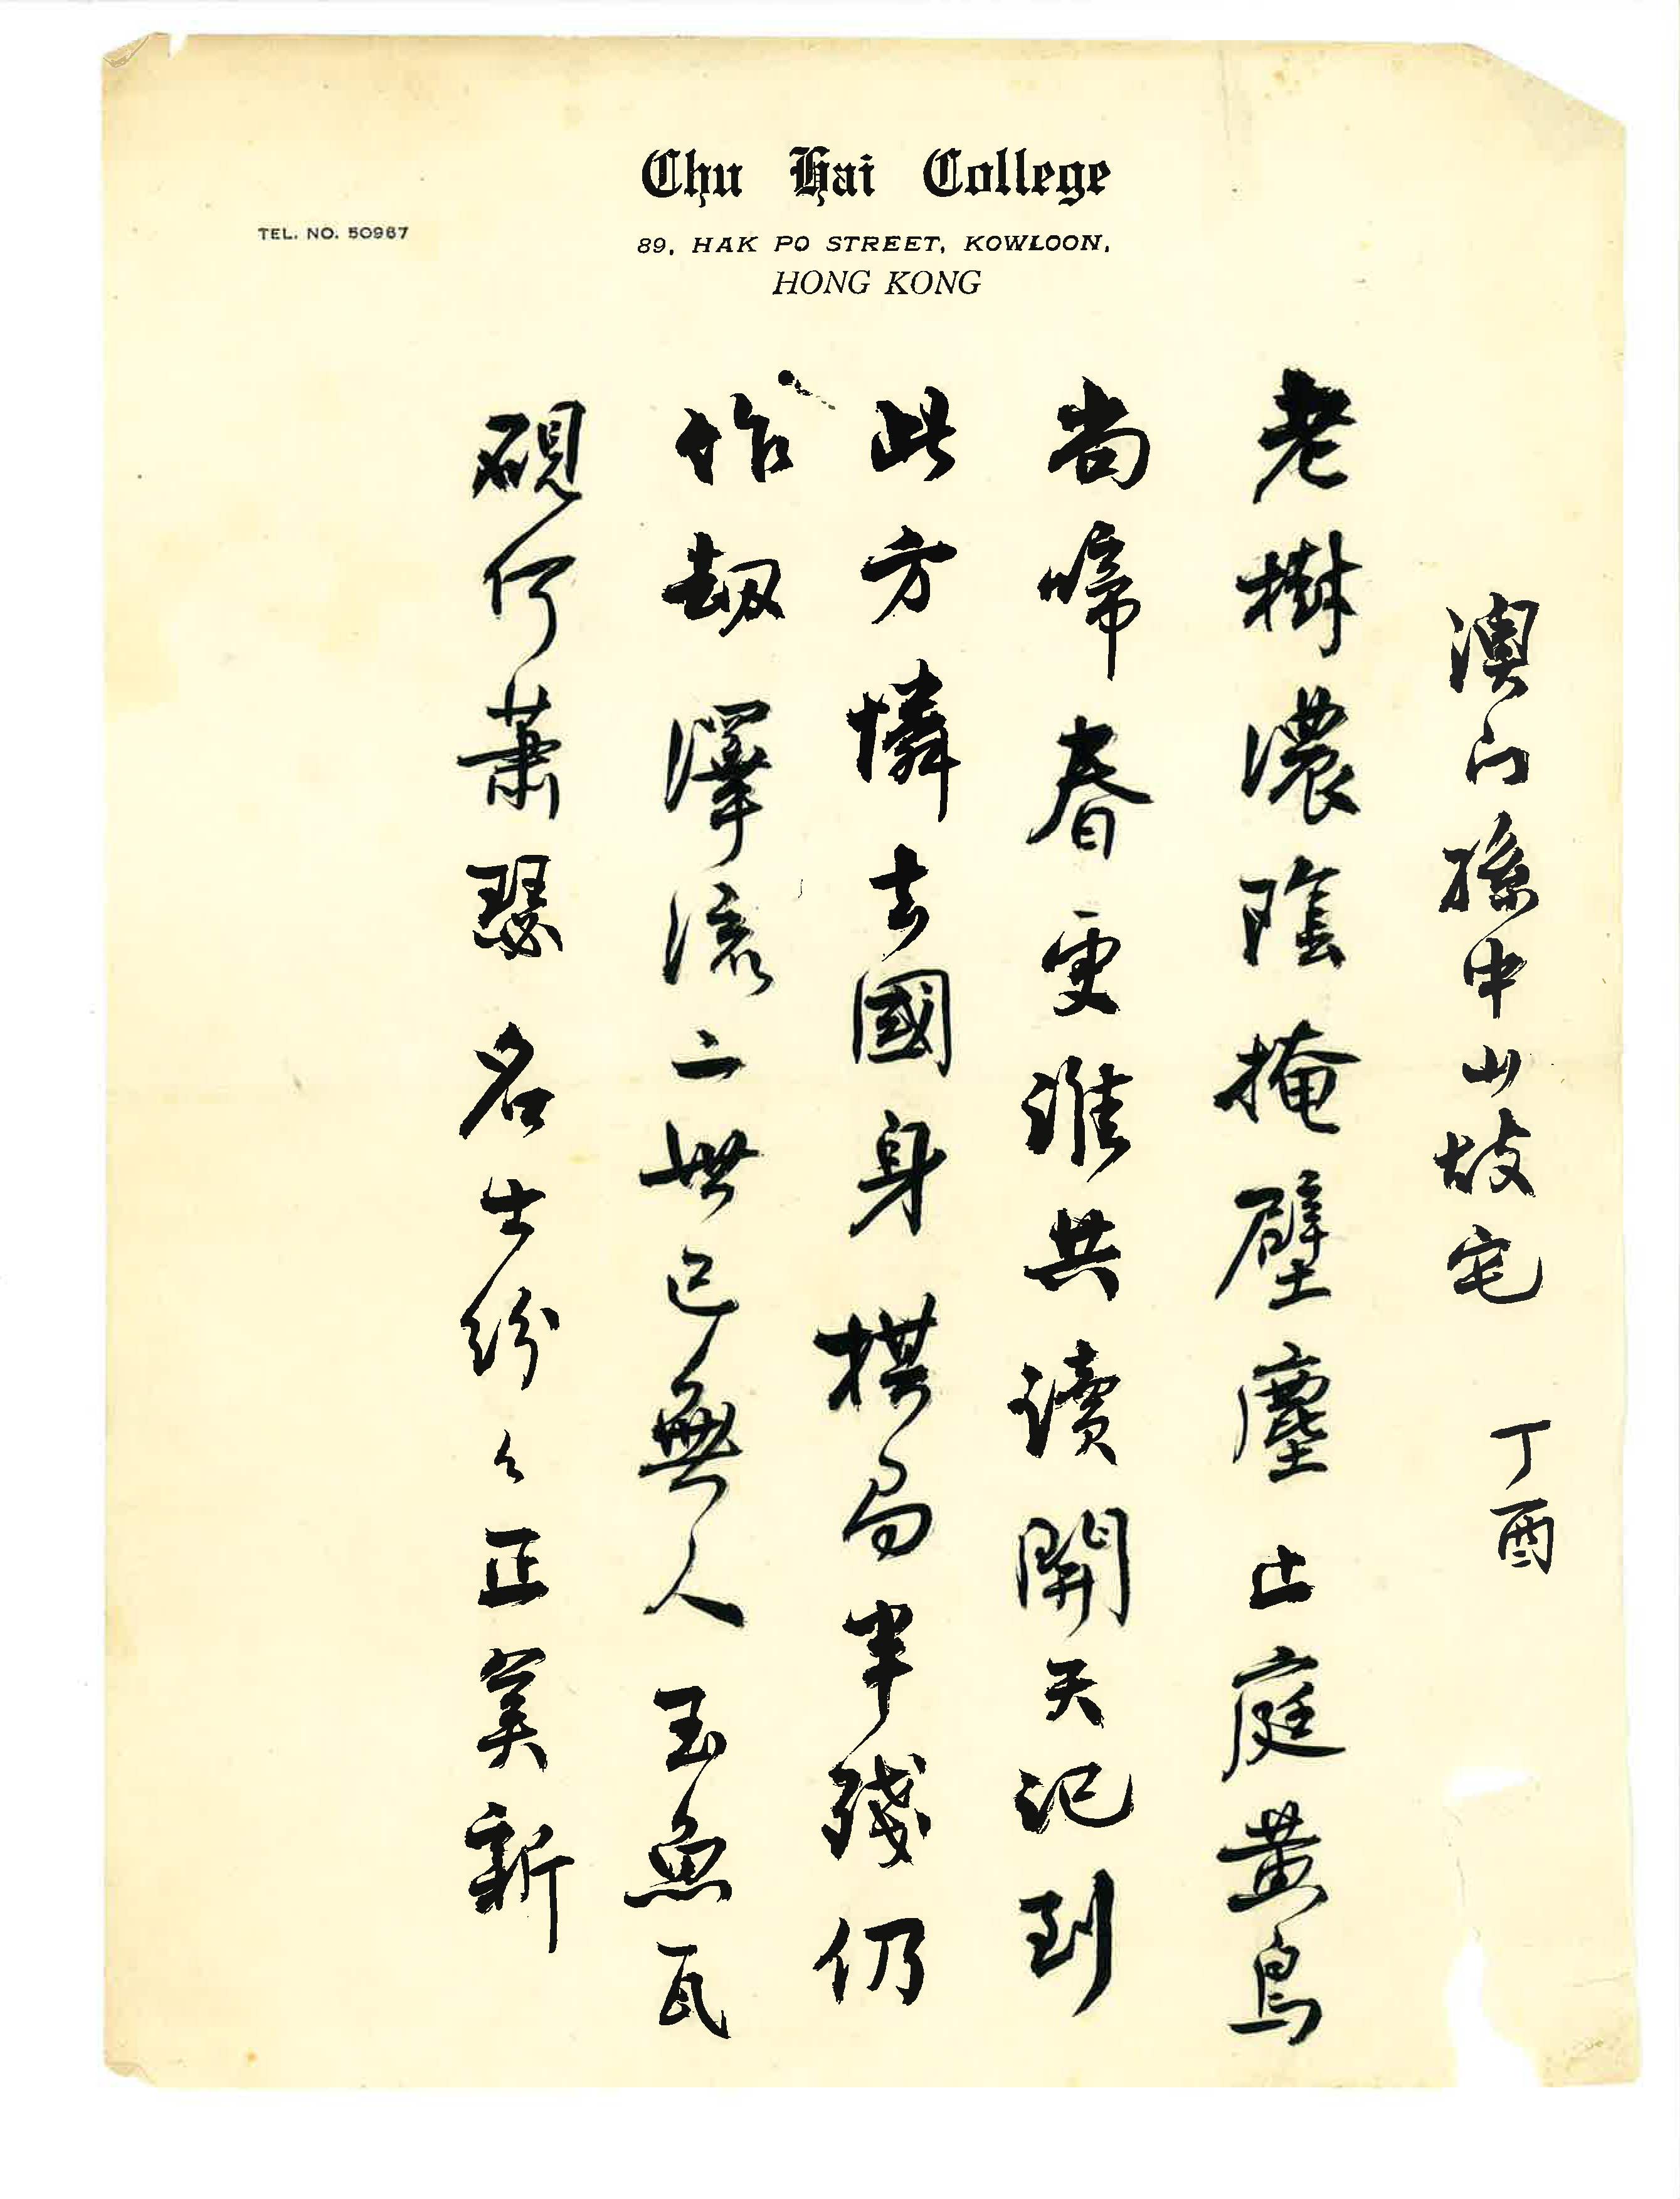 Chu Hai College
TEL. NO. 50967
89, HAK PO STREET, KOWLOON,
HONG KONG
澳门孫中山故宅 丁酉
老樹濃陰掩壁塵止庭黃鳥
尚啼春更誰共讀開天記到
此方憐去國身棋局半殘仍
作劫澤流二世已無人玉魚瓦
硯何蕭瑟名士紛々正美新